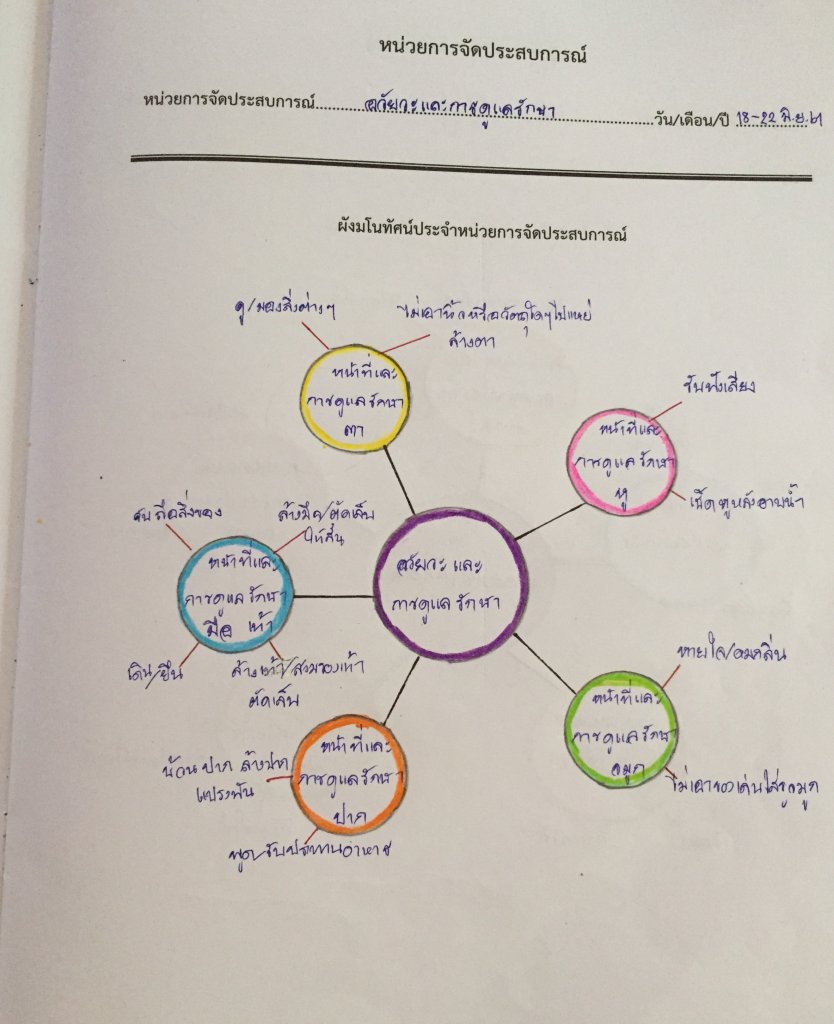 หน่วยการจัดประสบการณ์
หน่วยการจัดประสบการณ์ อวัยวะและการดูแลรักษา วัน/เดือน/ปี 18-22 มิ.ย. 61
ผังมโนทัศน์ประจำหน่วยการจัดประสบการณ์
ดู/มองสิ่งต่างๆ
ไม่เอานิ้วหรือวัตถุใดๆไปแหย่
ตา
หน้าที่และ
การดูแลรักษา
ตา
รับฟังเสียง
หน้าที่และ
การดูแลรักษา
หู
เช็ดหูหลังอาบน้ำ
จับ ถือสิ่งของ
ล้างมือ/ตัดเล็บ
ให้สั้น
หน้าที่และ
การดูแลรักษา
มือ เท้า
เดิน/ยืน
ล้างเท้า/สวมรองเท้า
ตัดเล็บ
อวัยวะ และ
การดูแลรักษา
หายใจ/ดมกลิ่น
หน้าที่และ
การดูแลรักษา
จมูก
ไม่เอาของเล่นใส่รูจมูก
หน้าที่และ
การดูแลรักษา
ปาก
ปาก ล้างปาก
แปรงฟัน
พูด/รับประทานอาหาร